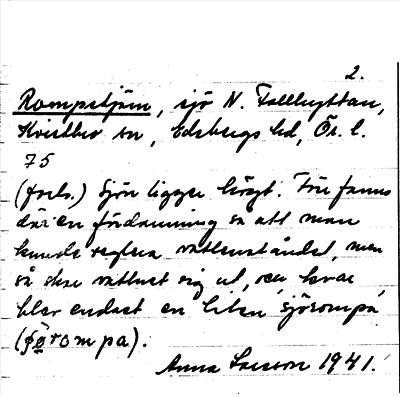 2.
Rompetjärn, sjö N. Fallhyttan,
Kvistbro sn, Edsbergs hd, Ör. l.
75
(forts.) Sjön ligger högt. Förr fanns
där en fördämning så att man
kunde reglera vattenståndet, men
så skar vattnet sig ut, och kvar
blev endast en liten "sjörompa"
(ʃö̱rompa).
Anna Larsson 1941.